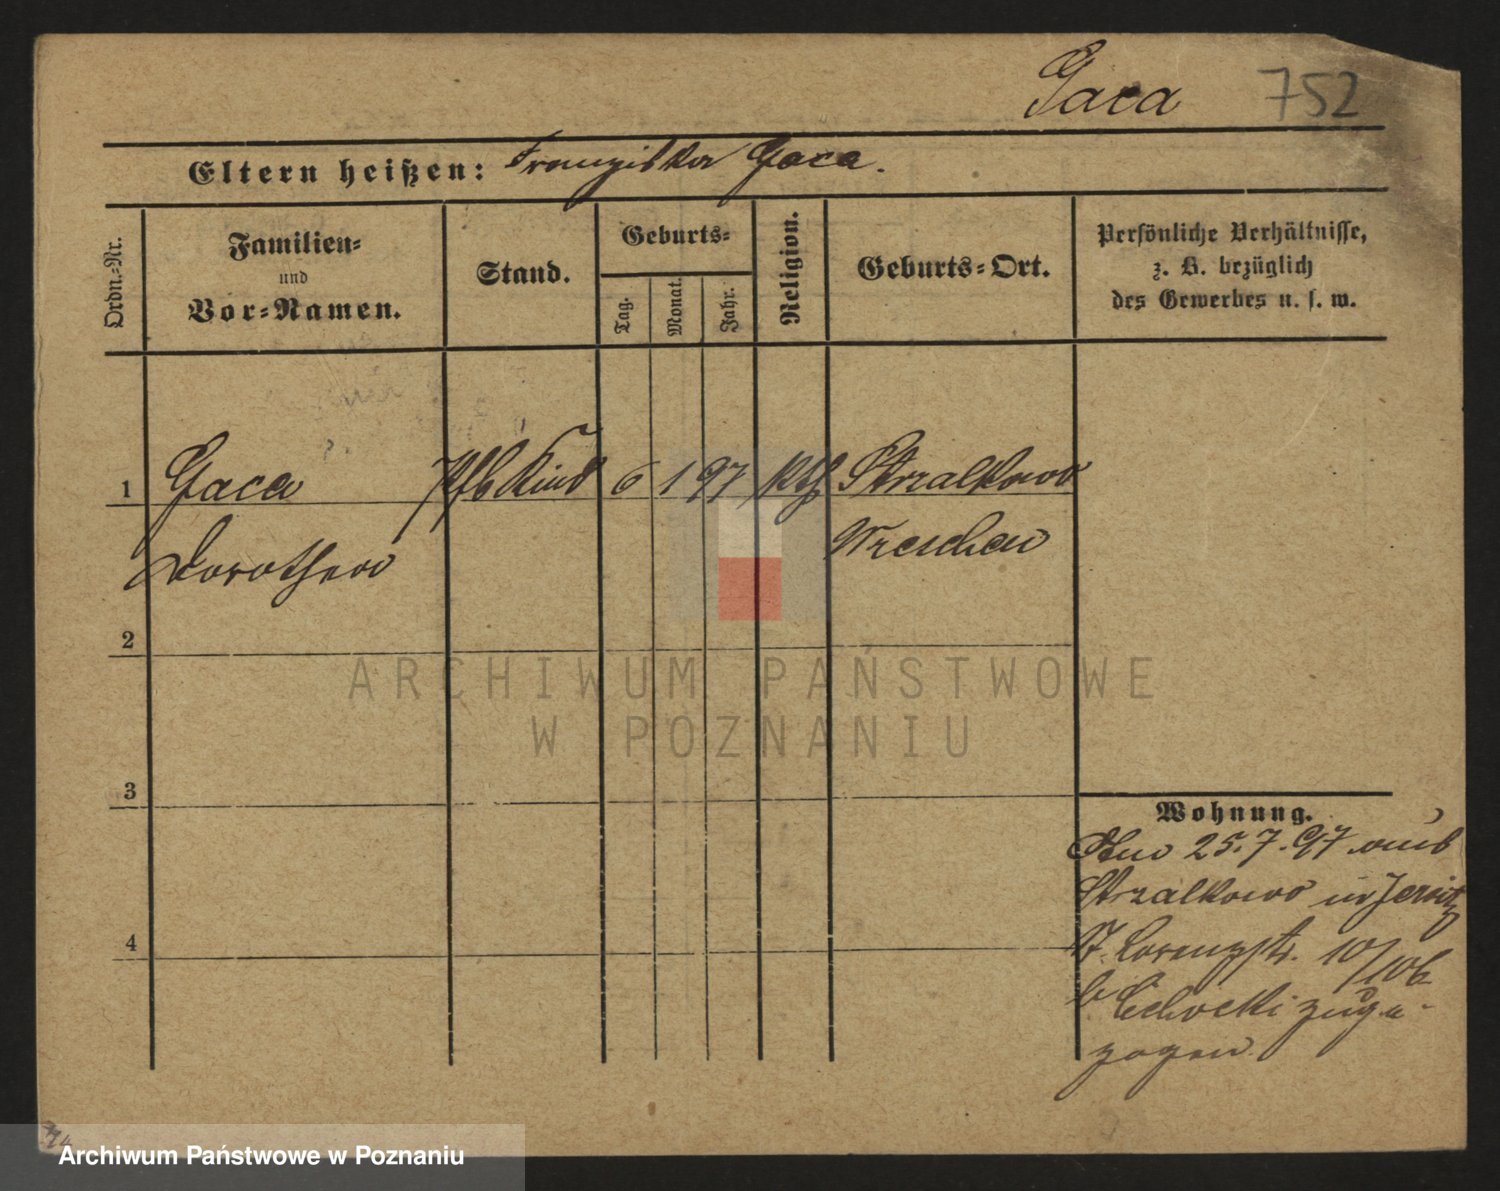 Gaca 752
Eltern heißen: Franziska Gaca.
Ordn.-Nr.
Familien-
und
Vor-Namen.
Stand.
Geburts-
Tag.
Monat.
Jahr.
Religion.
Geburts-Ort.
Persönliche Verhältnisse,
z. B. bezüglich
des Gewerbes u. s. w.
1 Gaca Kind 6 1 97 kth Strzalkowo
Dorothea Wreschen
2
3
4
Wohnung.
Am 25.7.97 aus
Strzalkowo in Jersitz
St. Lorenzstr. 10/10b
b Cichocki zuge-
zogen
ARCHIWUM PAŃSTWOWE
W POZNANIU
Archiwum Państwowe w Poznaniu